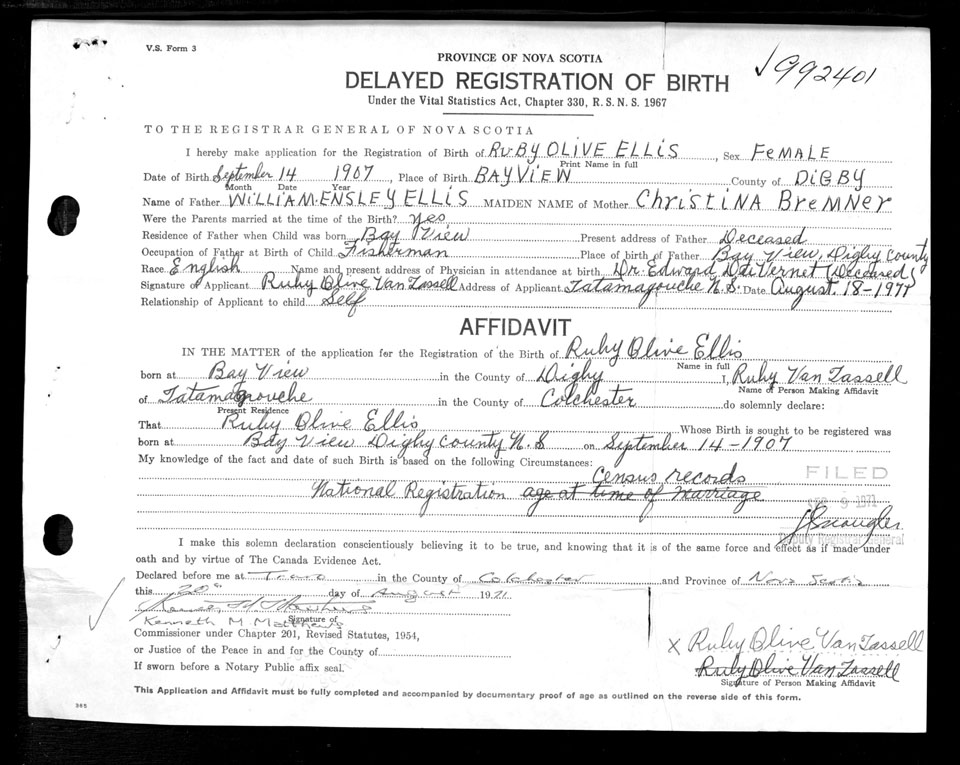 V.S. Form 3
PROVINCE OF NOVA SCOTIA
992401
DELAYED REGISTRATION OF BIRTH
Under the Vital Statistics Act, Chapter 330, R. S. N. S. 1967
TO THE REGISTRAR GENERAL OF NOVA SCOTIA
I hereby make application for the Registration of Birth of RUBY OLIVE ELLIS, Sex FeMALE
Print Name in full
Date of Birth September 14 1907, Place of Birth BAYVIEW County of DIGBY
Month Date Year
Name of Father WILLIAM ENSLEY ELLIS MAIDEN NAME of Mother CHrISTINA BreMNer
Were the Parents married at the time of the Birth? yes
Residence of Father when Child was born Bay View Present address of Father Deceased
Occupation of Father at Birth of Child Fisherman Place of birth of Father Bay View, Digby County
Race English Name and present address of Physician in attendance at birth Dr. Edward DuVernet (Deceased)
Signature of Applicant Ruby Olive Van Tassell Address of Applicant Tatamagouche N.S. Date August 18-1971
Relationship of Applicant to child Self
AFFIDAVIT
IN THE MATTER of the application for the Registration of the Birth of Ruby Olive Ellis
Name in full
born at Bay View in the County of Digby I, Ruby Van Tassell
Name of Person Making Affidavit
of Tatamagouche in the County of Colchester do solemnly declare:
Present Residence
That Ruby Olive Ellis Whose Birth is sought to be registered was
born at Bay View Digby County N.S on September 14-1907
My knowledge of the fact and date of such Birth is based on the following Circumstances:
Census records
FILED
National Registration age at time of marriage
9 1971
Deputy Registrar General
I make this solemn declaration conscientiously believing it to be true, and knowing that it is of the same force and effect as if made under
oath and by virtue of The Canada Evidence Act.
Declared before me at Truro in the County of Colchester and Province of Nova Scotia
this 20th day of August 1971
Kenneth M Matthews
Signature of
Commissioner under Chapter 201, Revised Statutes, 1954,
or Justice of the Peace in and for the County of
If sworn before a Notary Public affix seal.
X Ruby Olive Van Tassell
Ruby Olive Van Tassell
Signature of Person Making Affidavit
This Application and Affidavit must be fully completed and accompanied by documentary proof of age as outlined on the reverse side of this form.
365